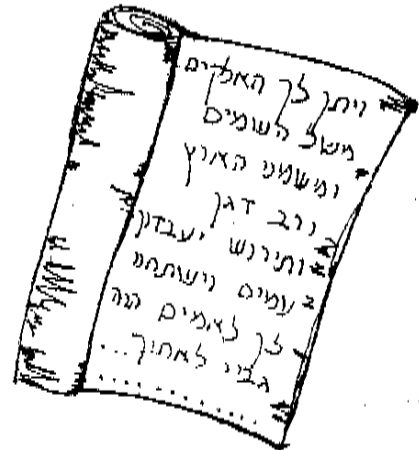 ויתן לך האלקים
מטל השמים
ומשמני הארץ
ורב דגן
ותירוש יעבדוך
עמים וישתחוו
לך לאמים הוה
גביר לאחיך...
..........